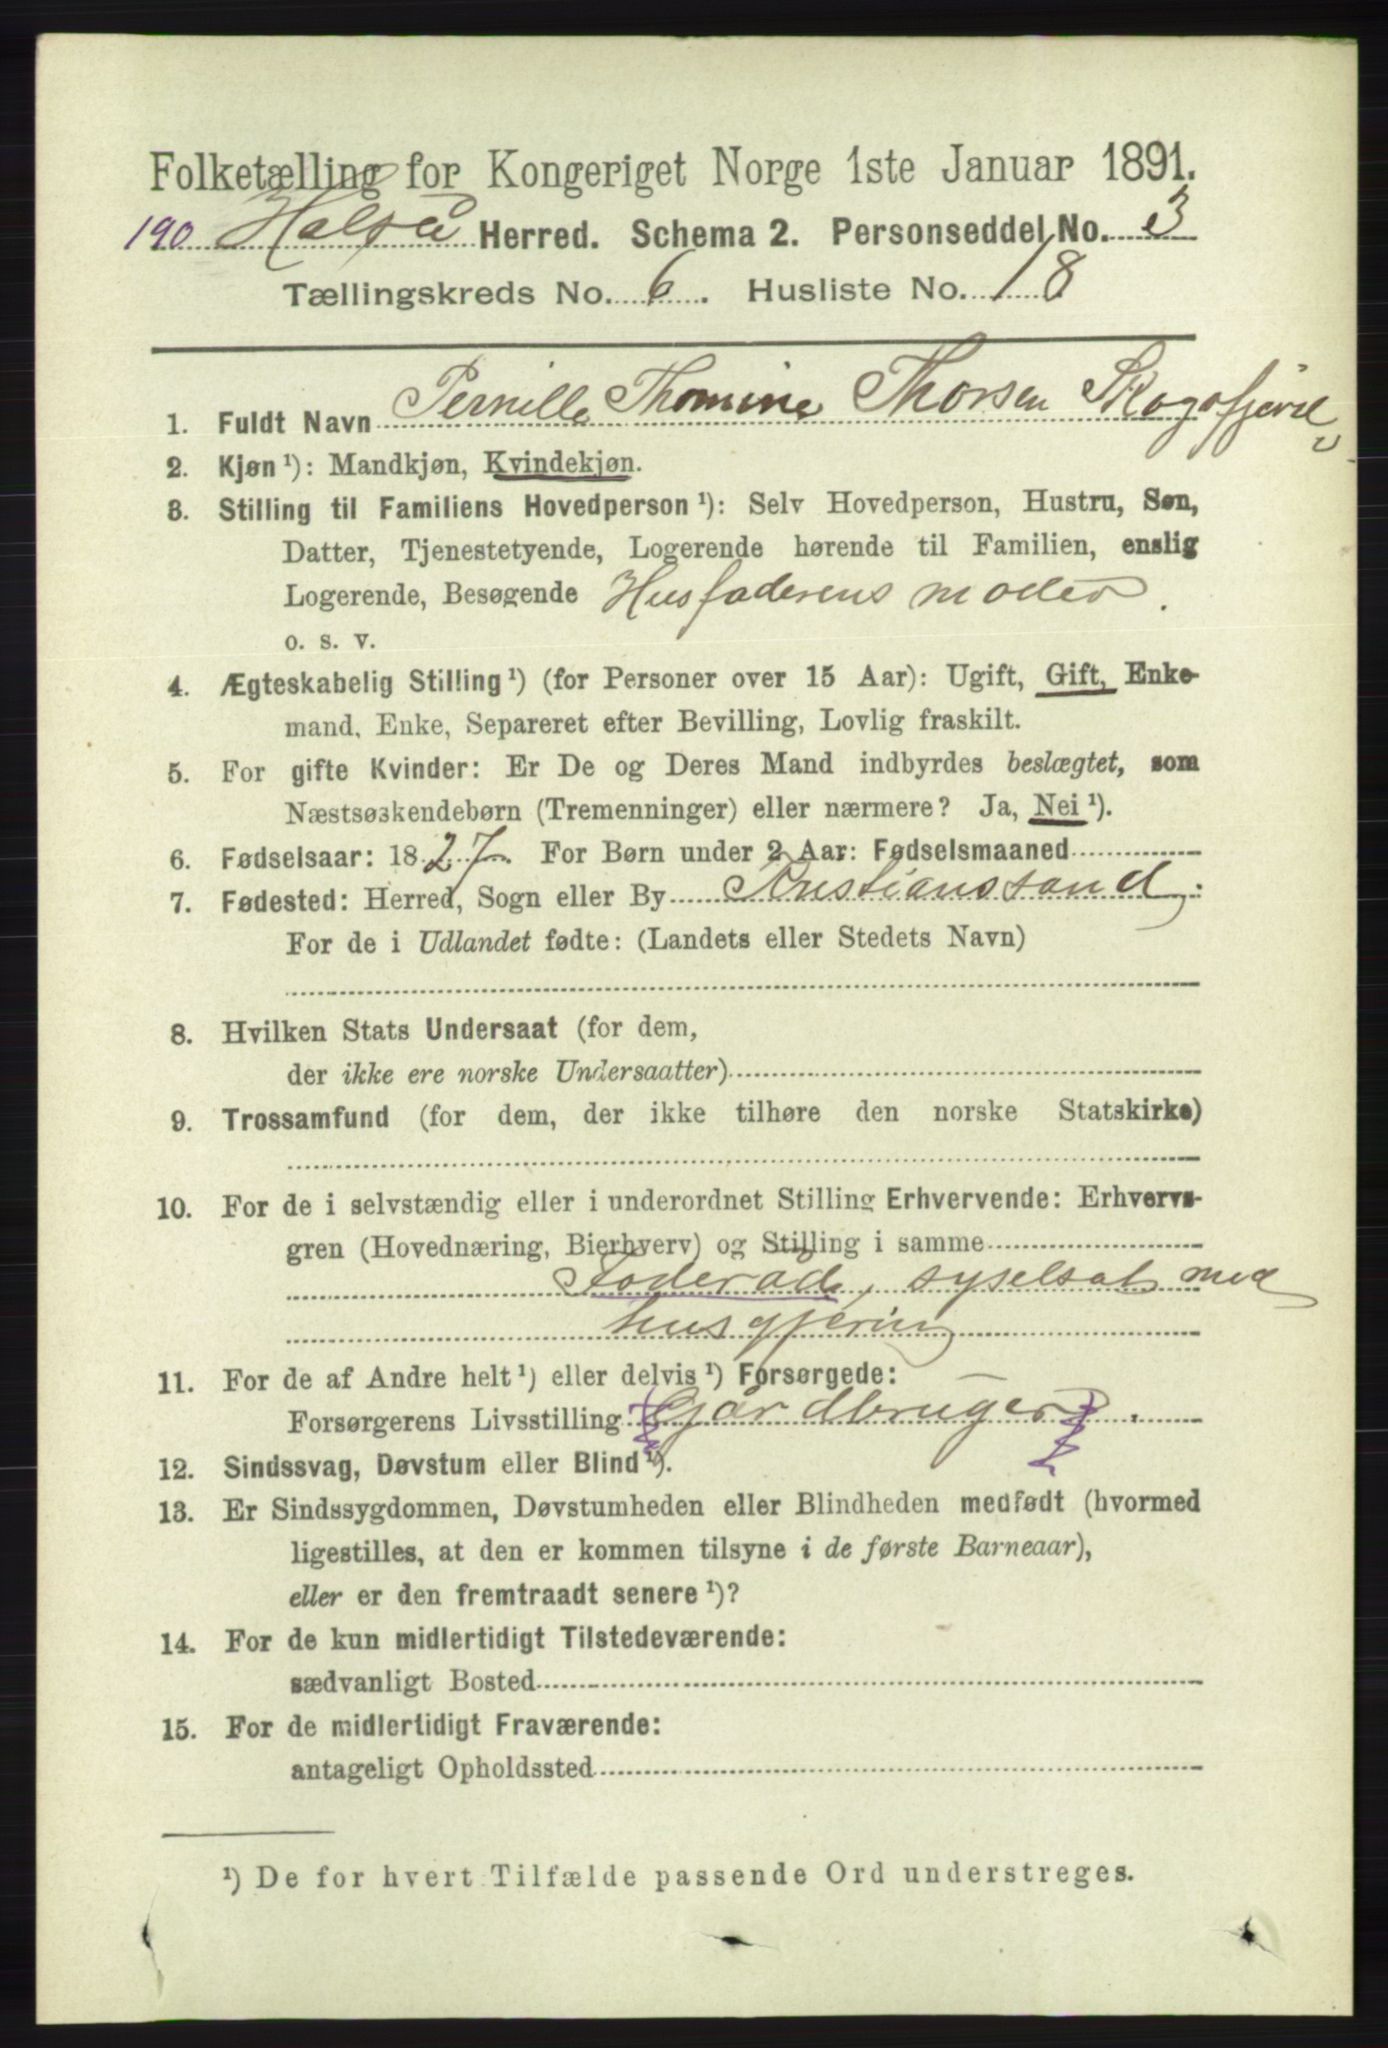 Folketælling for Kongeriget Norge 1ste Januar 1891.
190 Halså Herred. Schema 2. Personseddel No. 3
Tællingskreds No. 6. Husliste No. 18
1. Fuldt Navn Pernille Thomine Thorsen Skogsfjord
2. Kjøn¹): Mandkjøn, Kvindekjøn.
3. Stilling til Familiens Hovedperson¹): Selv Hovedperson, Hustru, Søn,
Datter, Tjenestetyende, Logerende hørende til Familien, enslig
Logerende, Besøgende Husfaderens moder.
o. s. v.
4. Ægteskabelig Stilling¹) (for Personer over 15 Aar): Ugift, Gift, Enke-
mand, Enke, Separeret efter Bevilling, Lovlig fraskilt.
5. For gifte Kvinder: Er De og Deres Mand indbyrdes beslægtet, som
Næstsøskendebørn (Tremenninger) eller nærmere? Ja, Nei¹).
6. Fødselsaar: 1827. For Børn under 2 Aar: Fødselsmaaned
7. Fødested: Herred, Sogn eller By Kristianssand.
For de i Udlandet fødte: (Landets eller Stedets Navn)
8. Hvilken Stats Undersaat (for dem,
der ikke ere norske Undersaatter)
9. Trossamfund (for dem, der ikke tilhøre den norske Statskirke)
10. For de i selvstændig eller i underordnet Stilling Erhvervende: Erhvervs-
gren (Hovednæring, Bierhverv) og Stilling i samme
Foderåd, syselsat med
husgjering
11. For de af Andre helt¹) eller delvis¹) Forsørgede:
Forsørgerens Livsstilling Gjårdbruger.
12. Sindssvag, Døvstum eller Blind¹).
13. Er Sindssygdommen, Døvstumheden eller Blindheden medfødt (hvormed
ligestilles, at den er kommen tilsyne i de første Barneaar),
eller er den fremtraadt senere¹)?
14. For de kun midlertidigt Tilstedeværende:
sædvanligt Bosted
15. For de midlertidigt Fraværende:
antageligt Opholdssted
¹) De for hvert Tilfælde passende Ord understreges.